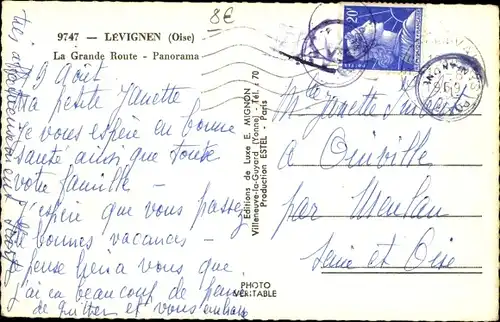 9747 - LÉVIGNEN (Oise)
La Grande Route - Panorama
8€
19 Août
Ma petite Janette
Je vous espère en bonne
santé ainsi que toute
votre famille -
J'espère que vous passez
de bonnes vacances -
Je pense bien a vous que
j'ai eu beaucoup de
de quitter et vous
Editions de Luxe E. MIGNON
Villeneuve-la-Guyard (Yonne) - Tél. 70
Production ESTEL - Paris
PHOTO
VÉRITABLE
20F
Janette
a Oinville
par Meulan
Seine et Oise